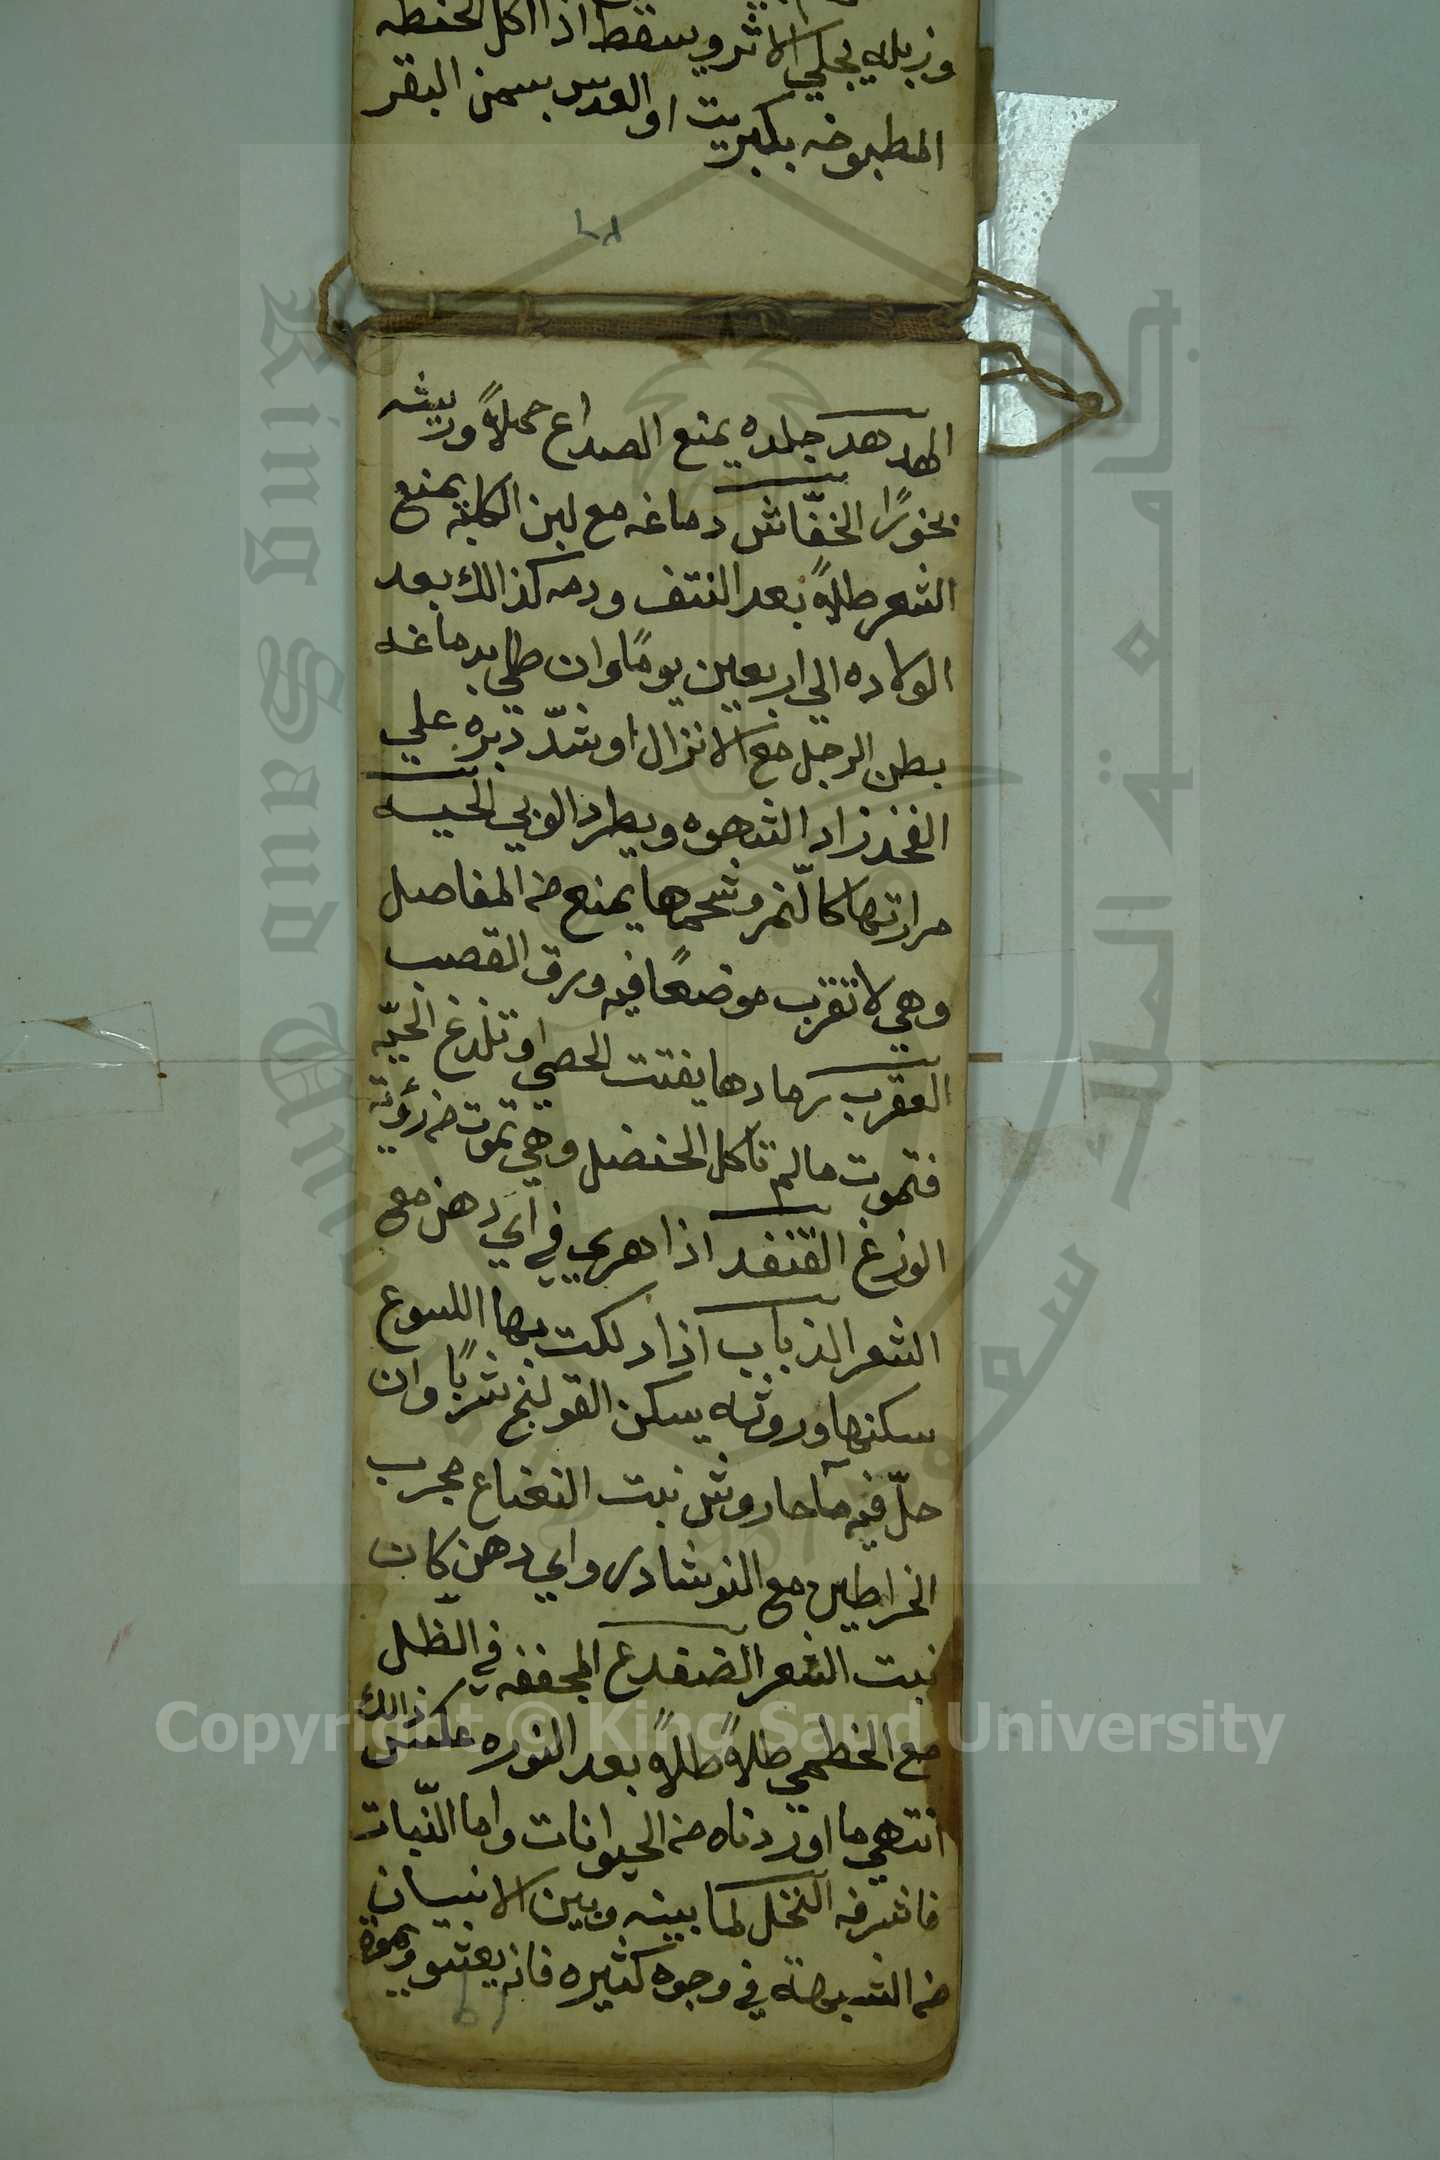 وزبله يجلي الاثر ويسقط اذا اكل الحنطه
المطبوخه بكبريت او العدس بسمن البقر
الهدهد جلده يمنع الصداع حملاً وريشه
بخورًا الخفّاش دماغه مع لبن الكلبه يمنع
الشعر طلاءً بعد النتف ودمه كذالك بعد
الولاده الي اربعين يومًا وان طلي بدماغه
بطن الرجل منع الانزال او شدّ دبره علي
الفخد زاد الشهوه ويطرد الوبي الحيه
مرارتها كالنّمر وشحمها يمنع من المفاصل
وهي لا تقرب موضعًا فيه ورق القصب
العقرب رمادها يفتت الحصي او تلدغ الحيّه
فتموت مالم تاكل الحنضل وهي تموت من رؤية
الوزغ القنفد اذا هري في اي دهن مع
الشعر الذباب اذا دلكت بها اللسوع
سكنها وروثه يسكن القولنج شربًا وان
حلّ فيه مآ حار ورش نبت النعناع مجرب
الخراطين مع النوشادر واي دهن كان
نبت الشعر الضفدع المجففه في الظّل
مع الخطمي طلاءً طلاءً بعد النوره عكس ذالك
انتهي ما اوردناه من الحيوانات واما النّبات
فاشرفه النخل لما بينه وبين الانسان
من الشبوهة في وجوه كثيره فانه يعشق
Copyright © King Saud University
King Saud University
جامعة الملك سعود
1957